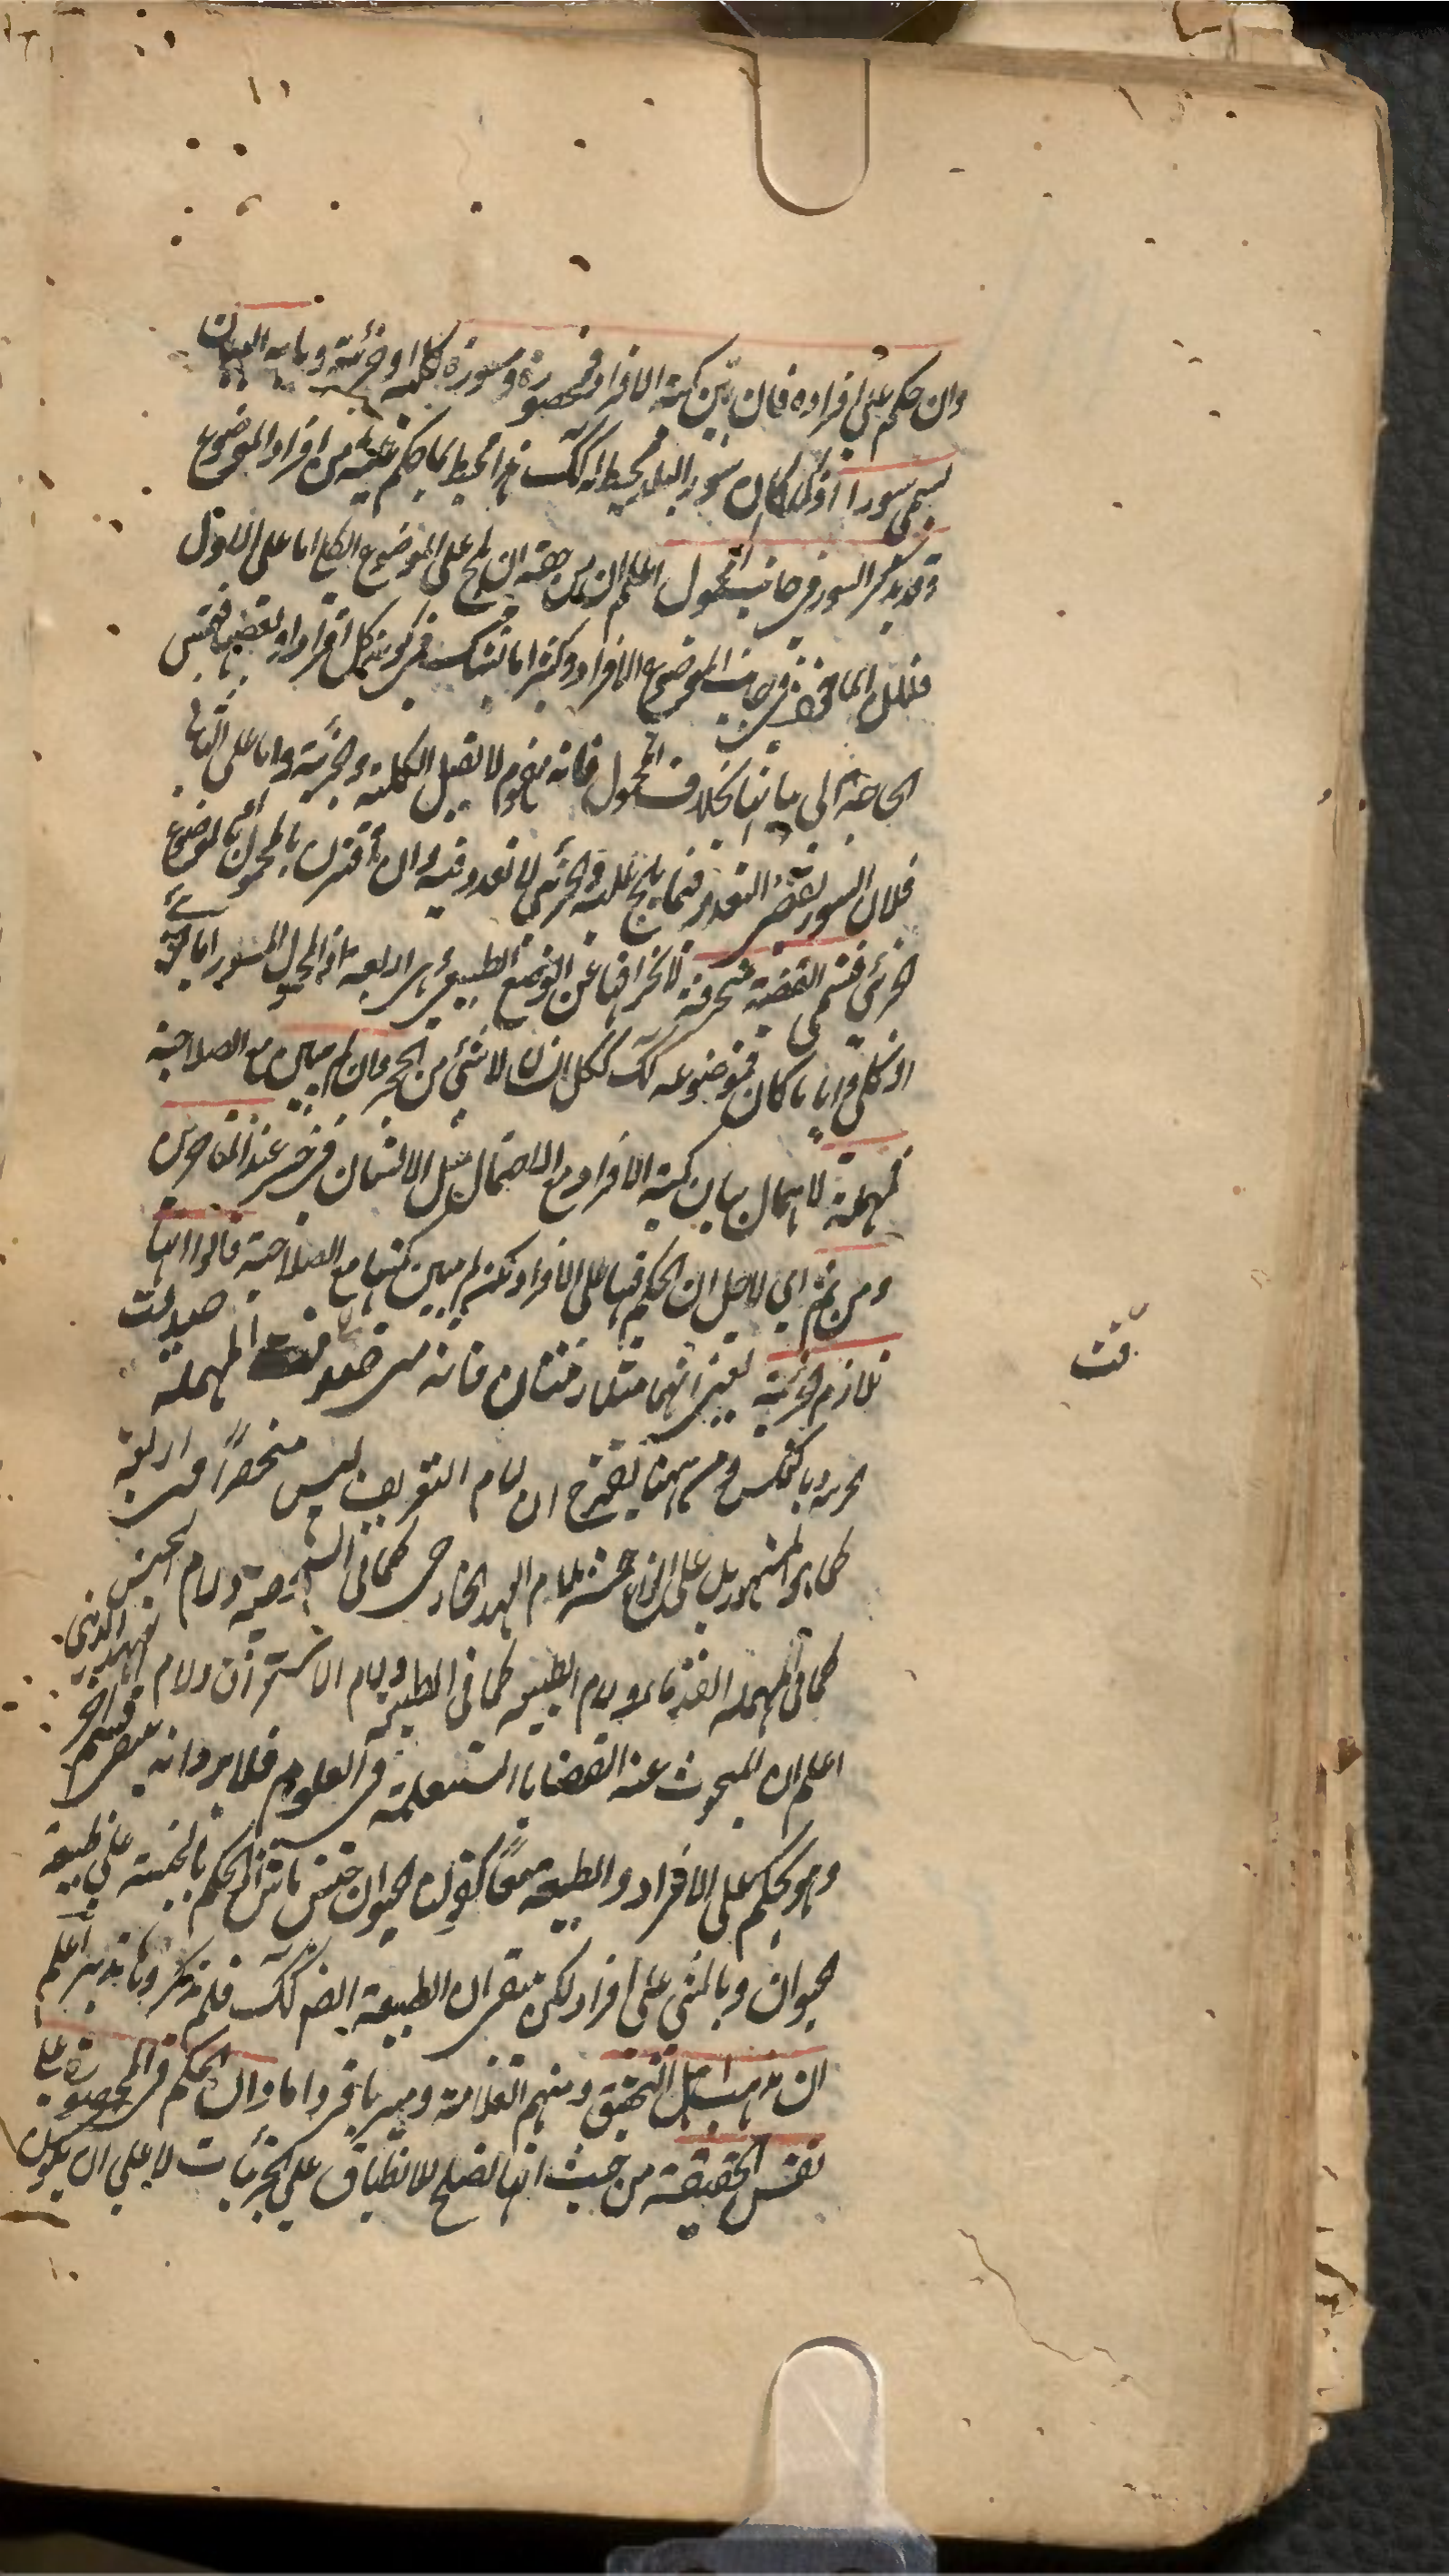 وان حكم على افراده فان بين كمية الافراد فمحصورة ومسورة كلية او جزئية وما به البيان
يسمى سورا اذ كما كان سور البلد محيطا له كك هذا محيط بما حكم عليه من افراد الموضوع
وقد يذكر السور في جانب المحمول اعلم ان من حقه ان يلج على الموضوع الكلى اما على الاول
فلان المأخوذ في جانب الموضوع الافراد وكثيرا ما يشك في كونه كل افراد او بعضها فمست
الحاجة الى بيانها بخلاف المحمول فانه مفهوم لا يقبل الكلية والجزئية واما على الثانى
فلان السور يقتضى التعدد فيما يلج عليه والجزئى لا تعدد فيه وان اقترن بالمحمول او الموضوع
الجزئى فتسمى القضية منحرفة لانحرافها عن الوضع الطبيعى وهى اربعة اذ المحمول المسور اما جزئى
او كلى وايا ما كان فموضوعه كك ككل انسان لا شئ من الحجر فان لم يبين مع الصلاحية
فمهملة لاهمال بيان كمية الافراد مع الاحتمال مثل الانسان في خسر عند المتأخرين
ومن ثم اى لاجل ان الحكم فيها على الافراد لكن لم يبين كميتها مع الصلاحية قالوا انها
تلازم الجزئية يعنى انهما متلازمتان فانه متى صدقت المهملة صدقت
الجزئية وبالعكس ومن ههنا يتضح ان لام التعريف ليس منحصرا في اربعة
كما هو المشهور بل على انواع خمسة لام العهد الخارجى كما في الشخصية ولام الجنس
كما في المهملة القدمائية ولام الطبيعة كما في الطبيعية ولام الاستغراق ولام العهد الذهنى
اعلم ان المبحوث عنه القضايا المستعملة في العلوم فلا يرد انه بقى قسم اخر
وهو الحكم على الافراد والطبيعة معا كقولنا الحيوان جنس ماش اذ الحكم بالجنسية على طبيعة
الحيوان وبالمشى على افراد لكن بقى ان الطبيعة ايضا كك فلم ذكروها تدبر اعلم
ان مذهب اهل التحقيق ومنهم العلامة ومير باقر داماد ان الحكم في المحصورة على
نفس الحقيقة من حيث انها تصلح للانطباق على الجزئيات لا على ان يكون
قت